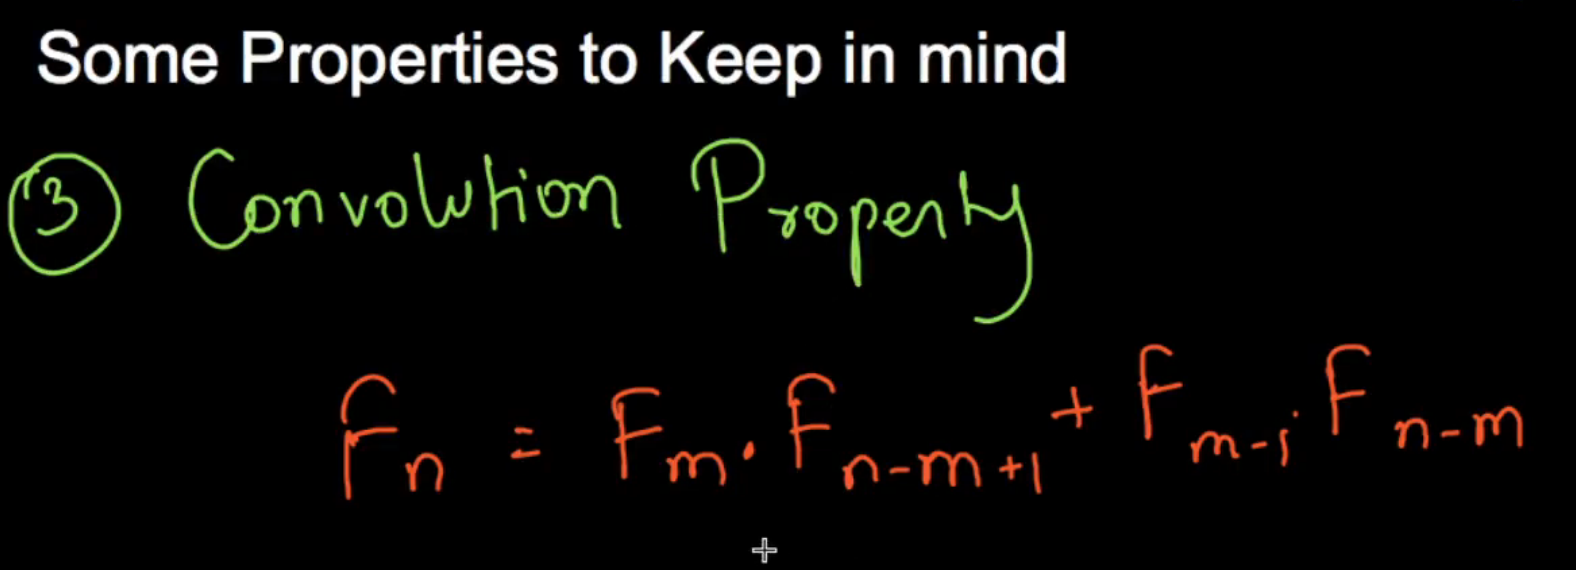 Some Properties to Keep in mind
③ Convolution Property
Fn = Fm . Fn-m+1 + Fm-1 Fn-m